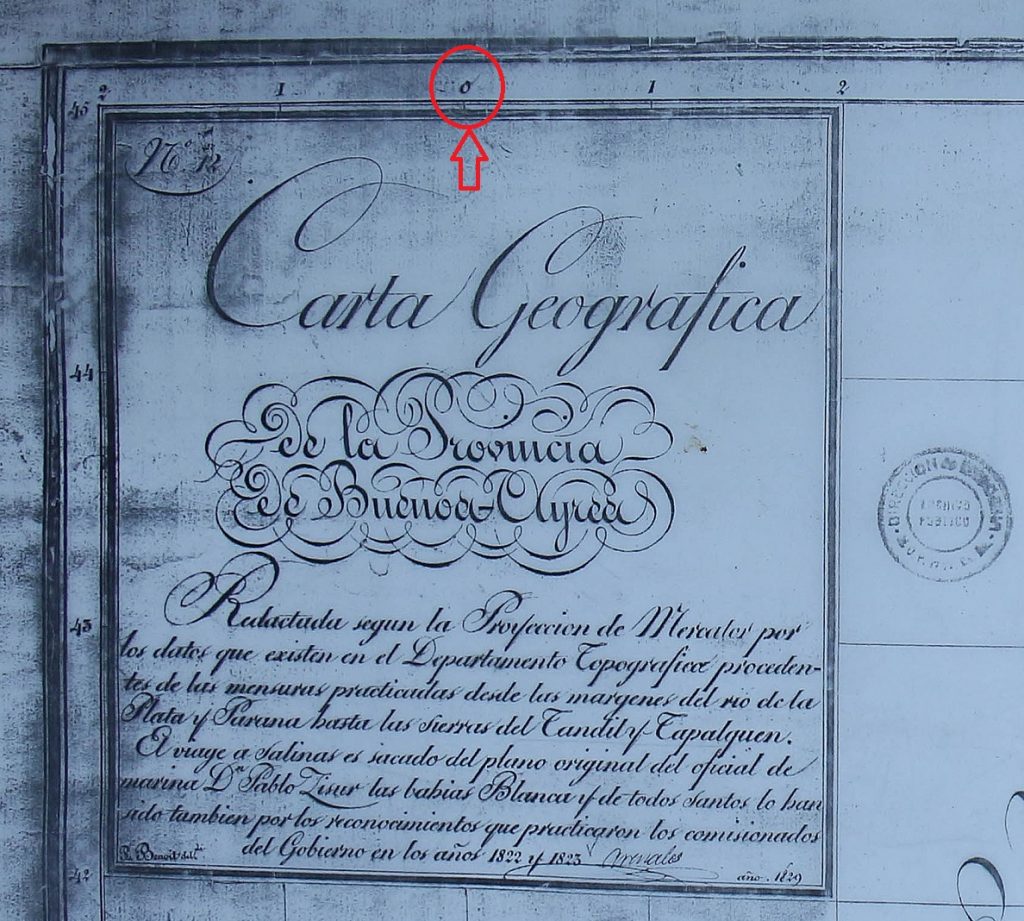 2 1 0 1 2
45
Nº 12
Carta Geografica
44
de la Provincia
de Buenos-Ayres
43
Redactada segun la Proyeccion de Mercator por
los datos que existen en el Departamento Topografico proceden-
tes de las mensuras practicadas desde las margenes del rio de la
Plata y Parana hasta las sierras del Tandil y Tapalquen.
El viage a Salinas es sacado del plano original del oficial de
marina Dn Pablo Zisur las bahias Blanca y de todos santos lo han
sido tambien por los reconocimientos que practicaron los comisionados
del Gobierno en los años 1822 y 1823 Arenales
42
año. 1829
DIRECCION DE